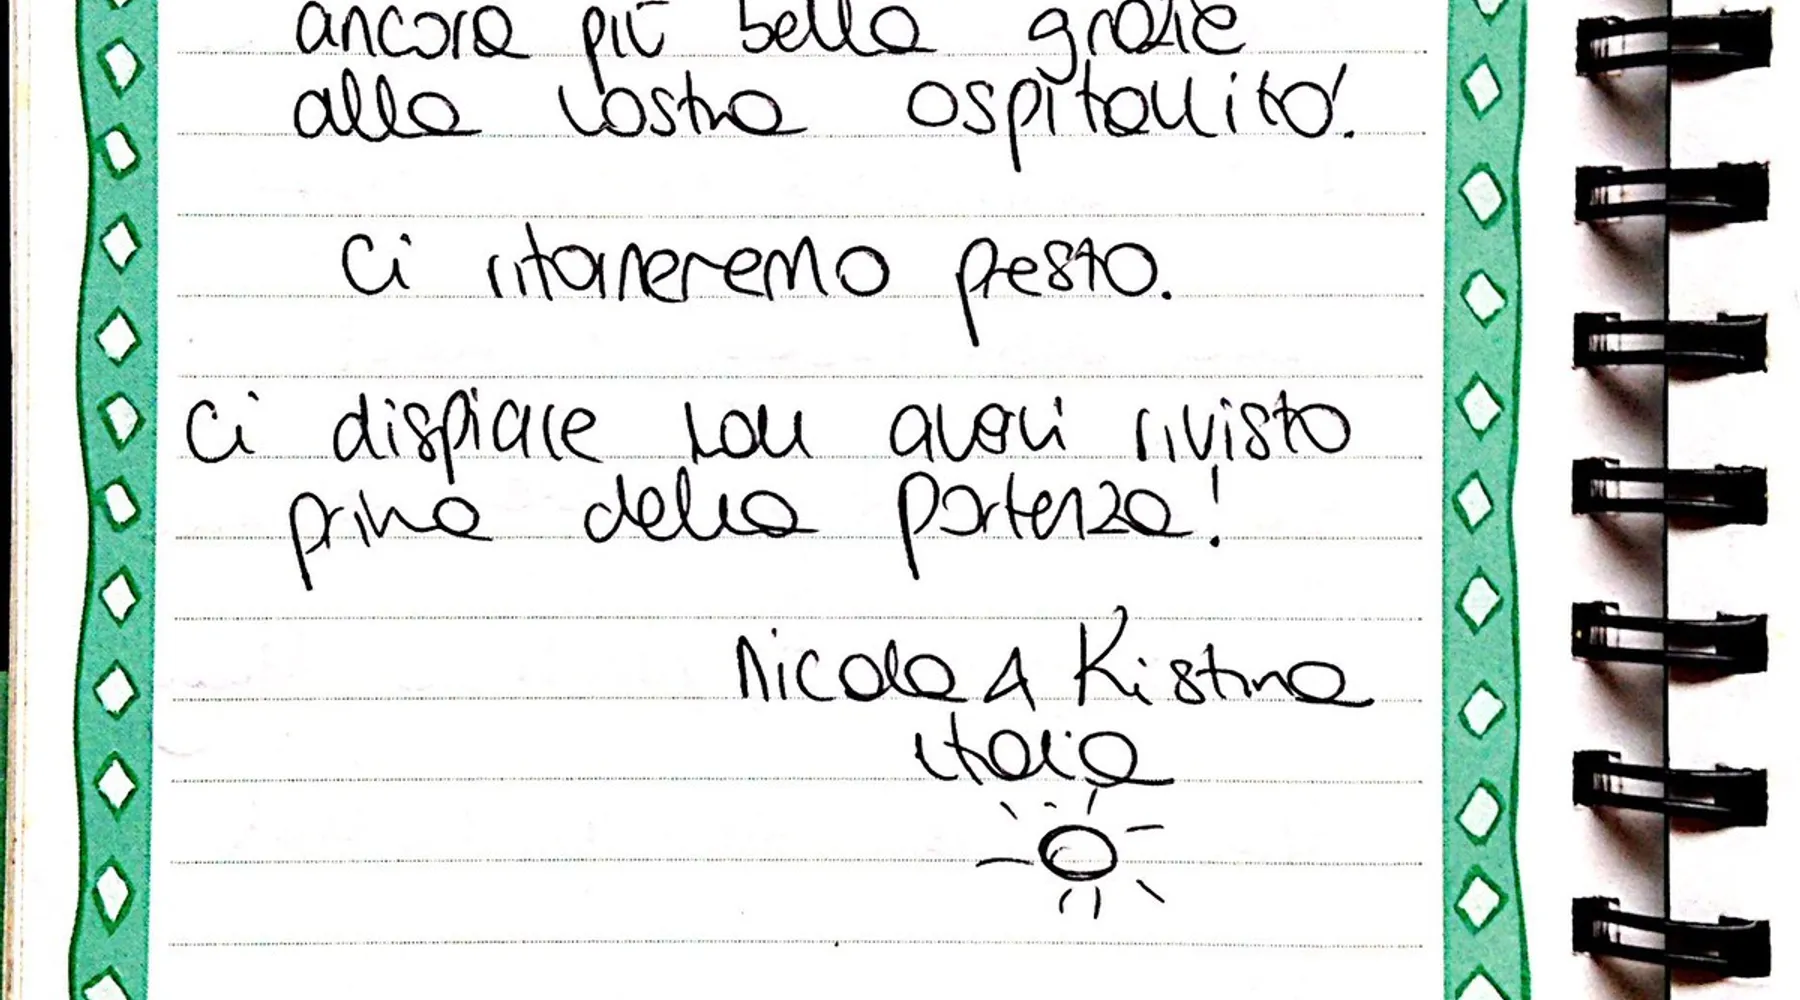 ancora più bella grazie
alla vostra ospitalità.
Ci ritorneremo presto.
Ci dispiace non avervi rivisto
prima della partenza!
Nicola & Kistina
Italia